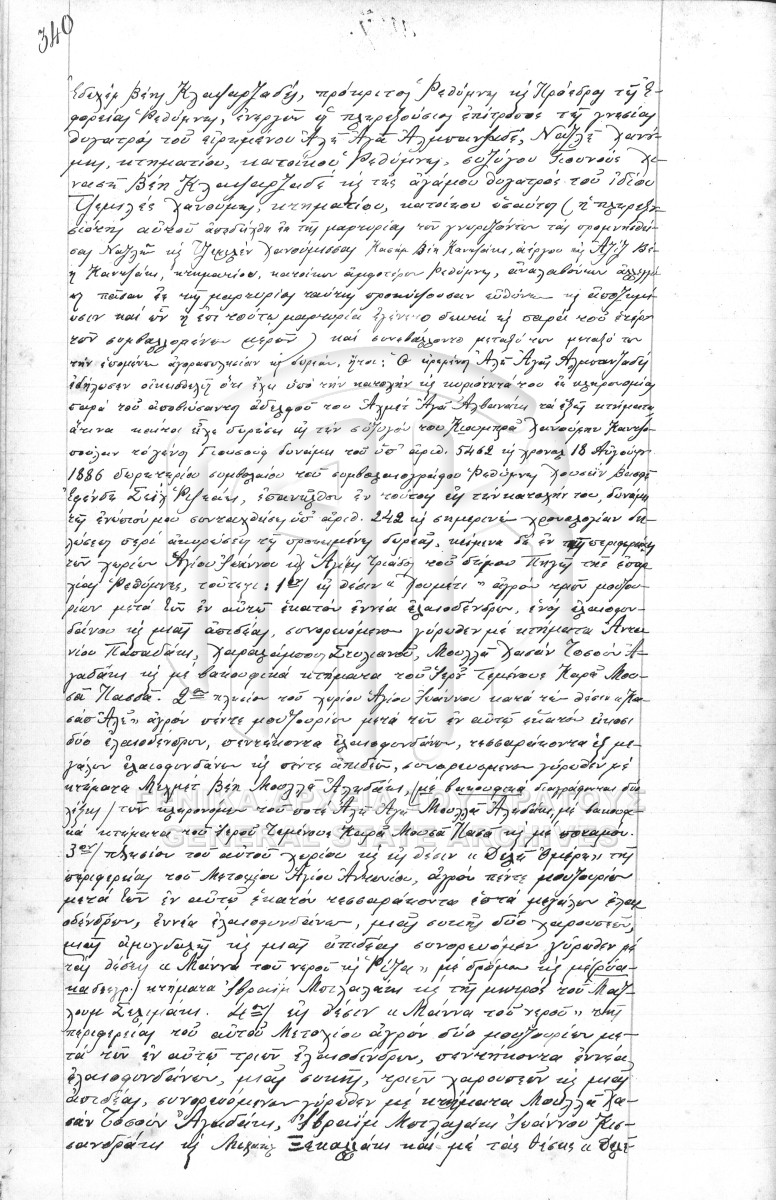 340
Ἐδχὲμ Βέης Κλαψαρζαδές, πρόκριτος Ῥεθύμνης κ Πρόεδρος τῆς Ἐ-
φορείας Ῥεθύμνης, ἐνεργῶν ὡς πληρεξούσιος ἐπίτροπος τῆς γνησίας
θυγατρός τοῦ εἰρημένου Ἀλῆ Ἀγᾶ Ἀλμπανζαδέ, Ναζλῆ Χανύ-
μης, κτηματίου, κατοίκου Ῥεθύμνης, συζύγου Γιουνούς
Βέη Κλαψαρζαδέ κ τῆς ἀγάμου θυγατρός τοῦ ἰδίου
Τζεμιλές Χανούμης, κτηματίου, κατοίκου ὡσαύτως (ἡ πληρεξου-
σιότης αὐτοῦ ἀπεδείχθη ἐκ τῆς μαρτυρίας τῶν γνωριζόντων τὰς
Ναζλῆν κ Τζεμιλέν Χανούμισσας Κασὴμ Βέη Καντζάκι, ἀέργου κ Ἀζὶζ Βέ-
η Καντζάκι, κτηματίου, κατοίκων ἀμφοτέρων Ῥεθύμνης, ἀναλαβόντων ἀλληλεγγύ-
ως πᾶσαν ἐκ τῆς μαρτυρίας ταύτης προκύψουσαν εὐθύνην κ ἀποζημί-
ωσιν καὶ ὧν ἡ ἐπὶ τούτῳ μαρτυρία ἐγένετο δεκτὴ κ παρὰ τοῦ ἑτέρου
τῶν συμβαλλομένων μερῶν) καὶ συνεβάλλοντο μεταξύ των
τὴν ἑπομένην ἀγοραπωλησίαν κ δωρεάν, ἤτοι: Ὁ εἰρημένος Ἀλῆ Ἀγᾶς Ἀλμπανζαδές
ἐδήλωσεν οἰκειοθελῶς ὅτι ἔχει ὑπὸ τὴν κατοχὴν κ κυριότητά του ἐκ κληρονομίας
παρὰ τοῦ ἀποβιώσαντος ἀδελφοῦ του Ἀχμὲτ Ἀγᾶ Ἀλβανάκι τὰ ἑξῆς κτήματα
ἅτινα πρώτον εἶχε δωρήσει εἰς τὴν σύζυγόν του Κιουμπρᾶ Χανούμην Καντζο-
πούλαν τὸ γένος Γιουσούφ δυνάμει τοῦ ὑπ' ἀριθ. 5462 κ χρονολ. 18 Αὐγούστου
1886 δωρητηρίου συμβολαίου τοῦ συμβολαιογράφου Ῥεθύμνης Χουσεΐν Βασφῆ
Ἐφένδη , ἐπανῆλθον ἐν τούτοις εἰς τὴν κατοχήν του, δυνάμει
τῆς ἐνώπιόν μου συνταχθείσης ὑπ' ἀριθ. 242 κ σημερινὴν χρονολογίαν δη-
λώσεως περὶ ἀκυρώσεως τῆς προκειμένης δωρεᾶς, κείμενα δὲ ἐν τῇ περιφερείᾳ
τῶν χωρίων Ἁγίου Ἰωάννου κ Ἁγίας Τριάδος τοῦ δήμου Πηγῆς τῆς ἐπαρ-
χίας Ῥεθύμνης, τουτέστι: 1ον/ εἰς θέσιν « » ἀγρὸν τριῶν μουζου-
ρίων μετὰ τῶν ἐν αὐτῷ ἑκατὸν ἐννέα ἐλαιοδένδρων, ἑνὸς ἐλαιοφυν-
δάνου κ μιᾶς ἀπιδέας, συνορευόμενον γύρωθεν μὲ κτήματα Ἀντω-
νίου Παπαδάκι, Χαραλάμπου Στυλιανοῦ, Μουλλᾶ Χασὰν Τοσοὺν Ἀ-
γαδάκι κ μὲ βακουφικὰ κτήματα τοῦ Ἱεροῦ Τεμένους Καρᾶ Μου-
σᾶ Πασσᾶ. 2ον πλησίον τοῦ χωρίου Ἁγίου Ἰωάννου κατὰ τὴν θέσιν «Κα-
σάπ Ἀλῆ» ἀγρὸν πέντε μουζουρίων μετὰ τῶν ἐν αὐτῷ ἑκατὸν εἴκοσι
δύο ἐλαιοδένδρων, πεντήκοντα ἐλαιοφυνδάνων, τεσσαράκοντα ἓξ με-
γάλων ἐλαιοφυνδάνων κ πέντε ἀπιδεῶν, συνορευόμενον γύρωθεν μὲ
κτήματα Μεχμὲτ Βέη Μουλλᾶ Ἀλιδάκι, (μὲ βακουφικὰ διαγράφονται δύο
λέξεις) τῶν κληρονόμων τοῦ ποτὲ Ἀλῆ Ἀγᾶ Μουλλᾶ Ἀλιδάκι, μὲ βακουφι-
κὰ κτήματα τοῦ Ἱεροῦ Τεμένους Καρᾶ Μουσᾶ Πασᾶ κ μὲ ποταμόν.
3ον/ πλησίον τοῦ αὐτοῦ χωρίου κ εἰς θέσιν « Δελῆ Ὀμέρη» τῆς
περιφερείας τοῦ Μετοχίου Ἁγίου Ἀντωνίου, ἀγρὸν πέντε μουζουρίων
μετὰ τῶν ἐν αὐτῷ ἑκατὸν τεσσαράκοντα ἑπτὰ μεγάλων ἐλαιο-
δένδρων, ἐννέα ἐλαιοφυνδάνων, μιᾶς συκῆς, δύο χαρουπεῶν,
μιᾶς ἀμυγδαλῆς κ μιᾶς ἀπιδέας συνορευόμενον γύρωθεν μὲ
τὰς θέσεις « Μάννα τοῦ νεροῦ κ Ῥίζα» μὲ δρόμον κ μὲ (ῥύα-
κα διεγρ.) κτήματα Ἰβραΐμ Μπιλαλάκι κ τῆς μητρὸς τοῦ Μαζ-
λοὺμ Σελιμάκι. 4ον/ εἰς θέσιν « Μάννα τοῦ νεροῦ» τῆς
περιφερείας τοῦ αὐτοῦ Μετοχίου ἀγρὸν δύο μουζουρίων με-
τὰ τῶν ἐν αὐτῷ τριῶν ἐλαιοδένδρων, πεντήκοντα ἐννέα
ἐλαιοφυνδάνων, μιᾶς συκῆς, τριῶν χαρουπεῶν κ μιᾶς
ἀπιδέας, συνορευόμενον γύρωθεν μὲ κτήματα Μουλλᾶ Χα-
σὰν Τοσοὺν Ἀγαδάκι, Ἰβραΐμ Μπιλαλάκι Ἰωάννου Κισ-
σανδράκι κ Μιχαὴλ Ξεκαλάκι καὶ μὲ τὰς θέσεις « Δελῆ
ΓΕΝΙΚΑ ΑΡΧΕΙΑ ΤΟΥ ΚΡΑΤΟΥΣ
GENERAL STATE ARCHIVES